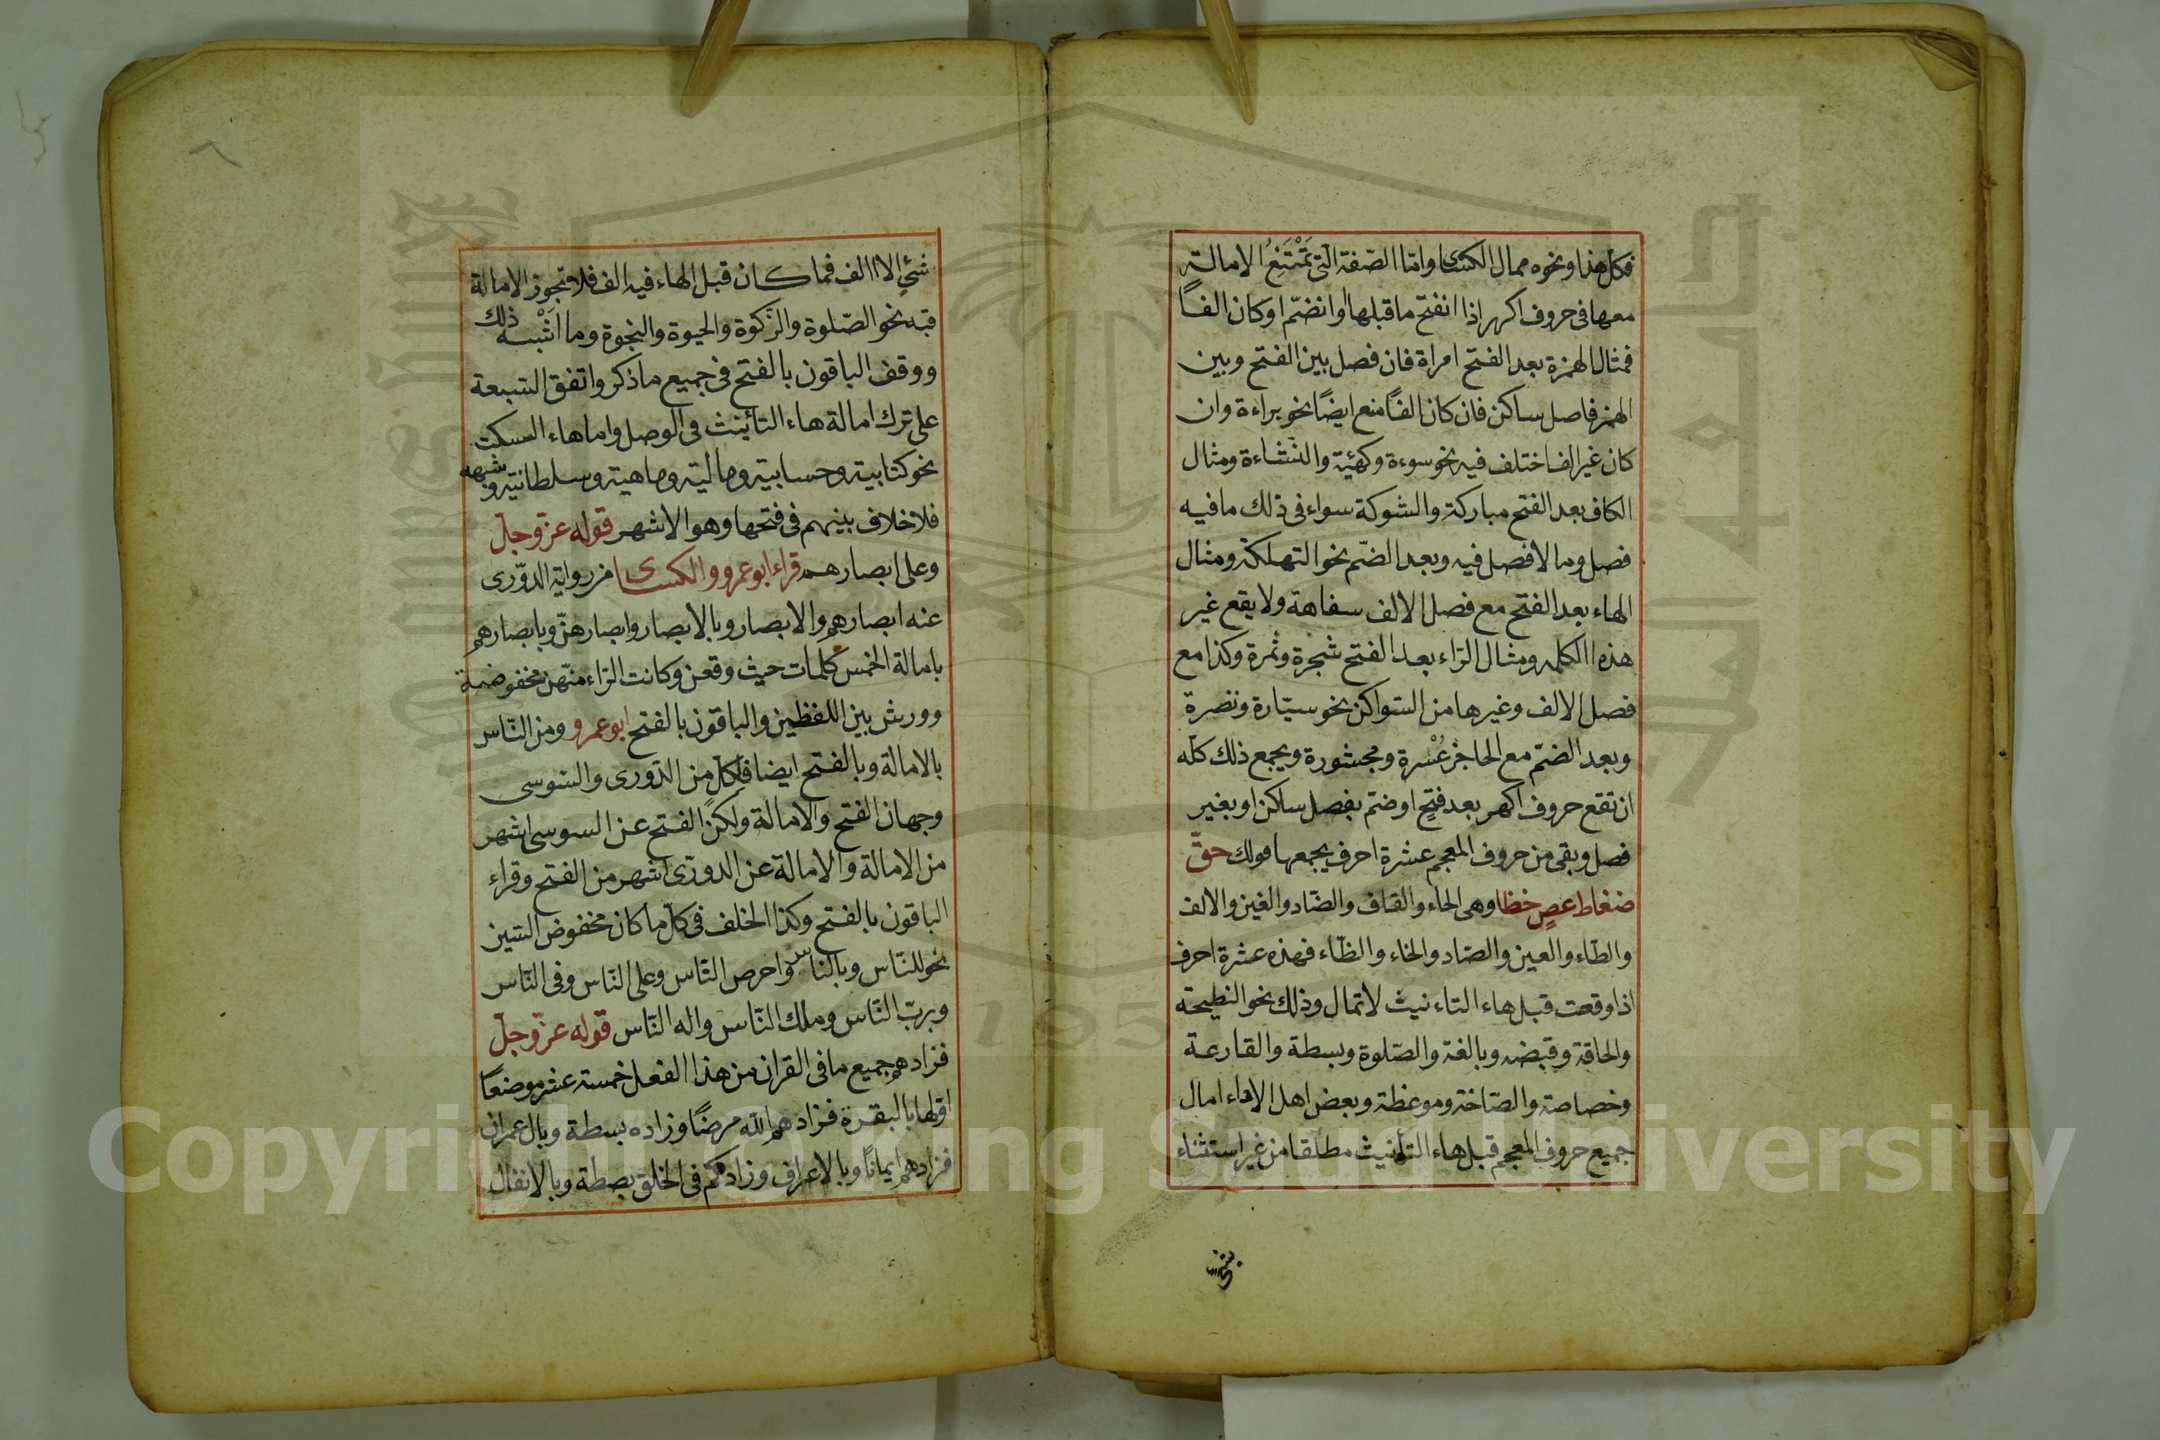 فكل هذا ونحوه ممال الكسائى واما الصّفة التى تَمْتَنِعُ الامالة
معها فى حروف اكهر اذا انفتح ما قبلها او انضمّ او كان الفًا
فمثال الهمزة بعد الفتح امراة فان فصل بين الفتح وبين
الهمز فاصل ساكن فان كان الفًا منع ايضًا نحو براءة وان
كان غير الف اختلف فيه نحو سوءة وكهيئة والنشاءة ومثال
الكاف بعد الفتح مباركة والشوكة سواء فى ذلك ما فيه
فصل وما لا فصل فيه وبعد الضّم نحو التهلكة ومثال
الهاء بعد الفتح مع فصل الالف سفاهة ولا يقع غير
هذه الكلمه ومثال الرّاء بعد الفتح شجرة وثمرة وكذا مع
فصل الالف وغيرها من السّواكن نحو سيّارة ونضرة
وبعد الضمّ مع الحاجز عُسْرة ومحشورة ويجمع ذلك كله
ان تقع حروف اكهر بعد فتحٍ او ضمّ بفصل ساكن او بغير
فصل وبقى من حروف المعجم عشرة احرف يجمعها قولك حقّ
ضغاط عصٍ خظا وهى الحاء والقاف والضّاد والغين والالف
والطّاء والعين والصّاد والخاء والظّاء فهذه عشرة احرف
اذا وقعت قبل هاء التاءنيث لا تمال وذلك نحو النطيحة
والحاقة وقبضه وبالغة والصّلوة وبسطة والقارعة
وخصاصة والصّاخة وموعظة وبعض اهل الاداء امال
جميع حروف المعجم قبل هاء التأنيث مطلقا من غير استثناء
شئ
شئ الا الالف فما كان قبل الهاء فيه الف فلا تجوز الامالة
فيه نحو الصّلوة والزّكوة والحيوة والنجوة وما اَشْبه ذلك
ووقف الباقون بالفتح فى جميع ما ذكر واتفق السّبعة
على ترك امالة هاء التأنيث فى الوصل واما هاء السكت
نحو كتابيه وحسابيه وماليه وماهيه وسلطانيه وشبهه
فلا خلاف بينهم فى فتحها وهو الاشهر قوله عزّ وجلّ
وعلى ابصارهم قراء ابو عمرو والكسائى من رواية الدّورى
عنه ابصارهم والابصار وبالابصار وابصارهنّ وبابصارهم
بامالة الخمس كلمات حيث وقعن وكانت الرّاء منّهن مخفوضة
وورش بين اللفظين والباقون بالفتح ابو عمرو ومن النّاس
بالامالة وبالفتح ايضا فلكلٍ من الدّورى والسّوسى
وجهان الفتح والامالة ولكن الفتح عن السوسى اشهر
من الامالة والامالة عن الدورّى اشهر من الفتح وقراء
الباقون بالفتح وكذا الخلف فى كلّ ما كان مخفوض السّين
نحو للنّاس وبالناس واحرص النّاس وعلى النّاس وفى النّاس
وبربّ النّاس وملك النّاس واله النّاس قوله عزّ وجلّ
فزادهم جميع ما فى القران من هذا الفعل خمسة عشر موضعًا
اوّلها بالبقرة فزادهم الله مرضًا وزاده بسطة وبال عمران
فزادهم ايمانًا وبالاعراف وزادكم فى الخلق بصطة وبالانفال
Copyright © King Saud University